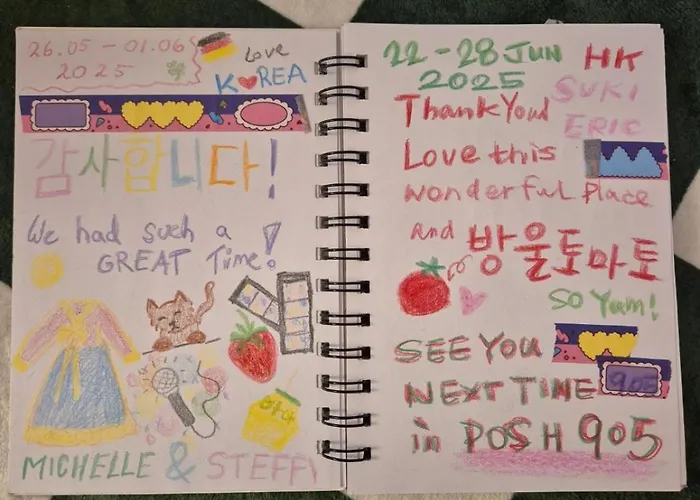 26.05 - 01.06
2025
Love
KOREA
감사합니다!
We had such a
GREAT Time!
MICHELLE & STEFFI
22-28 JUN
2025
HK
SUKI
ERIC
Thank You!
Love this
wonderful place
and 방울토마토
SO Yum!
SEE YOU
NEXT TIME
905
in POSH 905